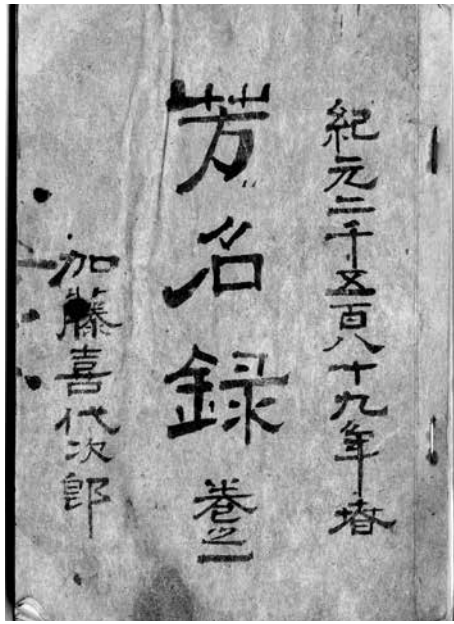 紀元二千五百八十九年春
芳名録 巻之一
加藤喜代次郎